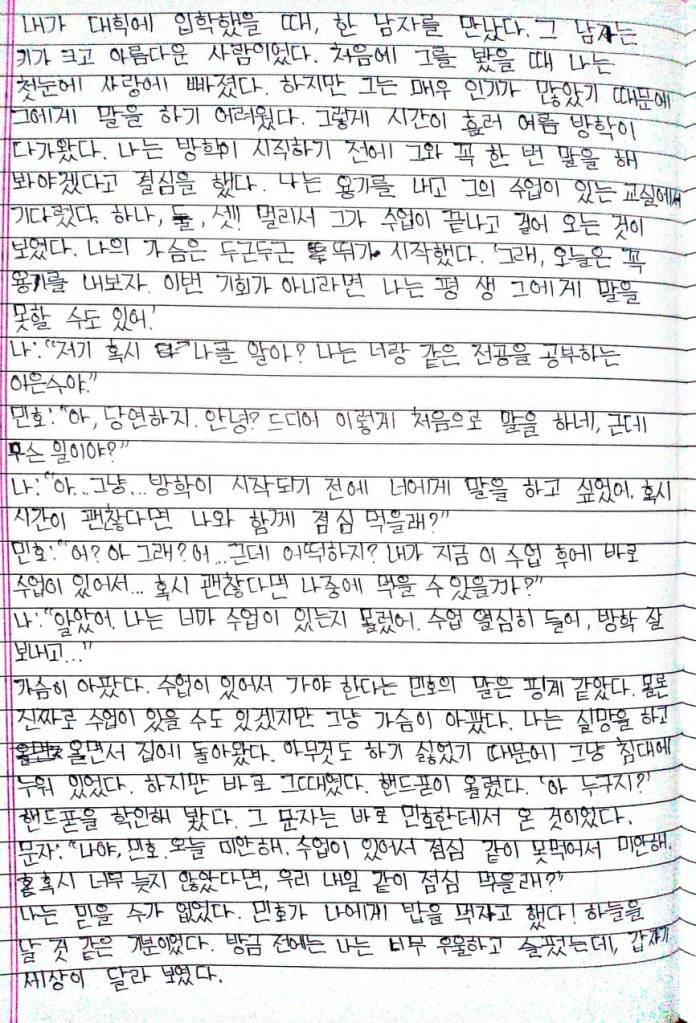 내가 대학에 입학했을 때, 한 남자를 만났다. 그 남자는
키가 크고 아름다운 사람이었다. 처음에 그를 봤을 때 나는
첫눈에 사랑에 빠졌다. 하지만 그는 매우 인기가 많았기 때문에
그에게 말을 하기 어려웠다. 그렇게 시간이 흘러 여름 방학이
다가왔다. 나는 방학이 시작하기 전에 그와 꼭 한 번 말을 해
봐야겠다고 결심을 했다. 나는 용기를 내고 그의 수업이 있는 교실에서
기다렸다. 하나, 둘, 셋!! 멀리서 그가 수업이 끝나고 걸어 오는 것이
보였다. 나의 가슴은 두근두근 뛰기 시작했다. '그래, 오늘은 꼭
용기를 내보자. 이번 기회가 아니라면 나는 평 생 그에게 말을
못할 수도 있어.'
나: "저기 혹시 나를 알아? 나는 너랑 같은 전공을 공부하는
이은수야."
민호: "아, 당연하지. 안녕? 드디어 이렇게 처음으로 말을 하네, 근데
무슨 일이야?"
나: "아... 그냥... 방학이 시작되기 전에 너에게 말을 하고 싶었어. 혹시
시간이 괜찮다면 나와 함께 점심 먹을래?"
민호: "어? 아 그래? 어... 근데 어떡하지? 내가 지금 이 수업 후에 바로
수업이 있어서... 혹시 괜찮다면 나중에 먹을 수 있을까?"
나: "알았어. 나는 너가 수업이 있는지 몰랐어. 수업 열심히 들어, 방학 잘
보내고..."
가슴이 아팠다. 수업이 있어서 가야 한다는 민호의 말은 핑계 같았다. 물론
진짜로 수업이 있을 수도 있겠지만 그냥 가슴이 아팠다. 나는 실망을 하고
울면서 집에 돌아왔다. 아무것도 하기 싫었기 때문에 그냥 침대에
누워 있었다. 하지만 바로 그때였다. 핸드폰이 울렸다. '아 누구지?'
핸드폰을 확인해 봤다. 그 문자는 바로 민호한데서 온 것이었다.
문자: "나야, 민호. 오늘 미안해. 수업이 있어서 점심 같이 못먹어서 미안해.
혹시 너무 늦지 않았다면, 우리 내일 같이 점심 먹을래?"
나는 믿을 수가 없었다. 민호가 나에게 밥을 먹자고 했다! 하늘을
날 것 같은 기분이었다. 방금 전에는 나는 너무 우울하고 슬펐는데, 갑자기
세상이 달라 보였다.